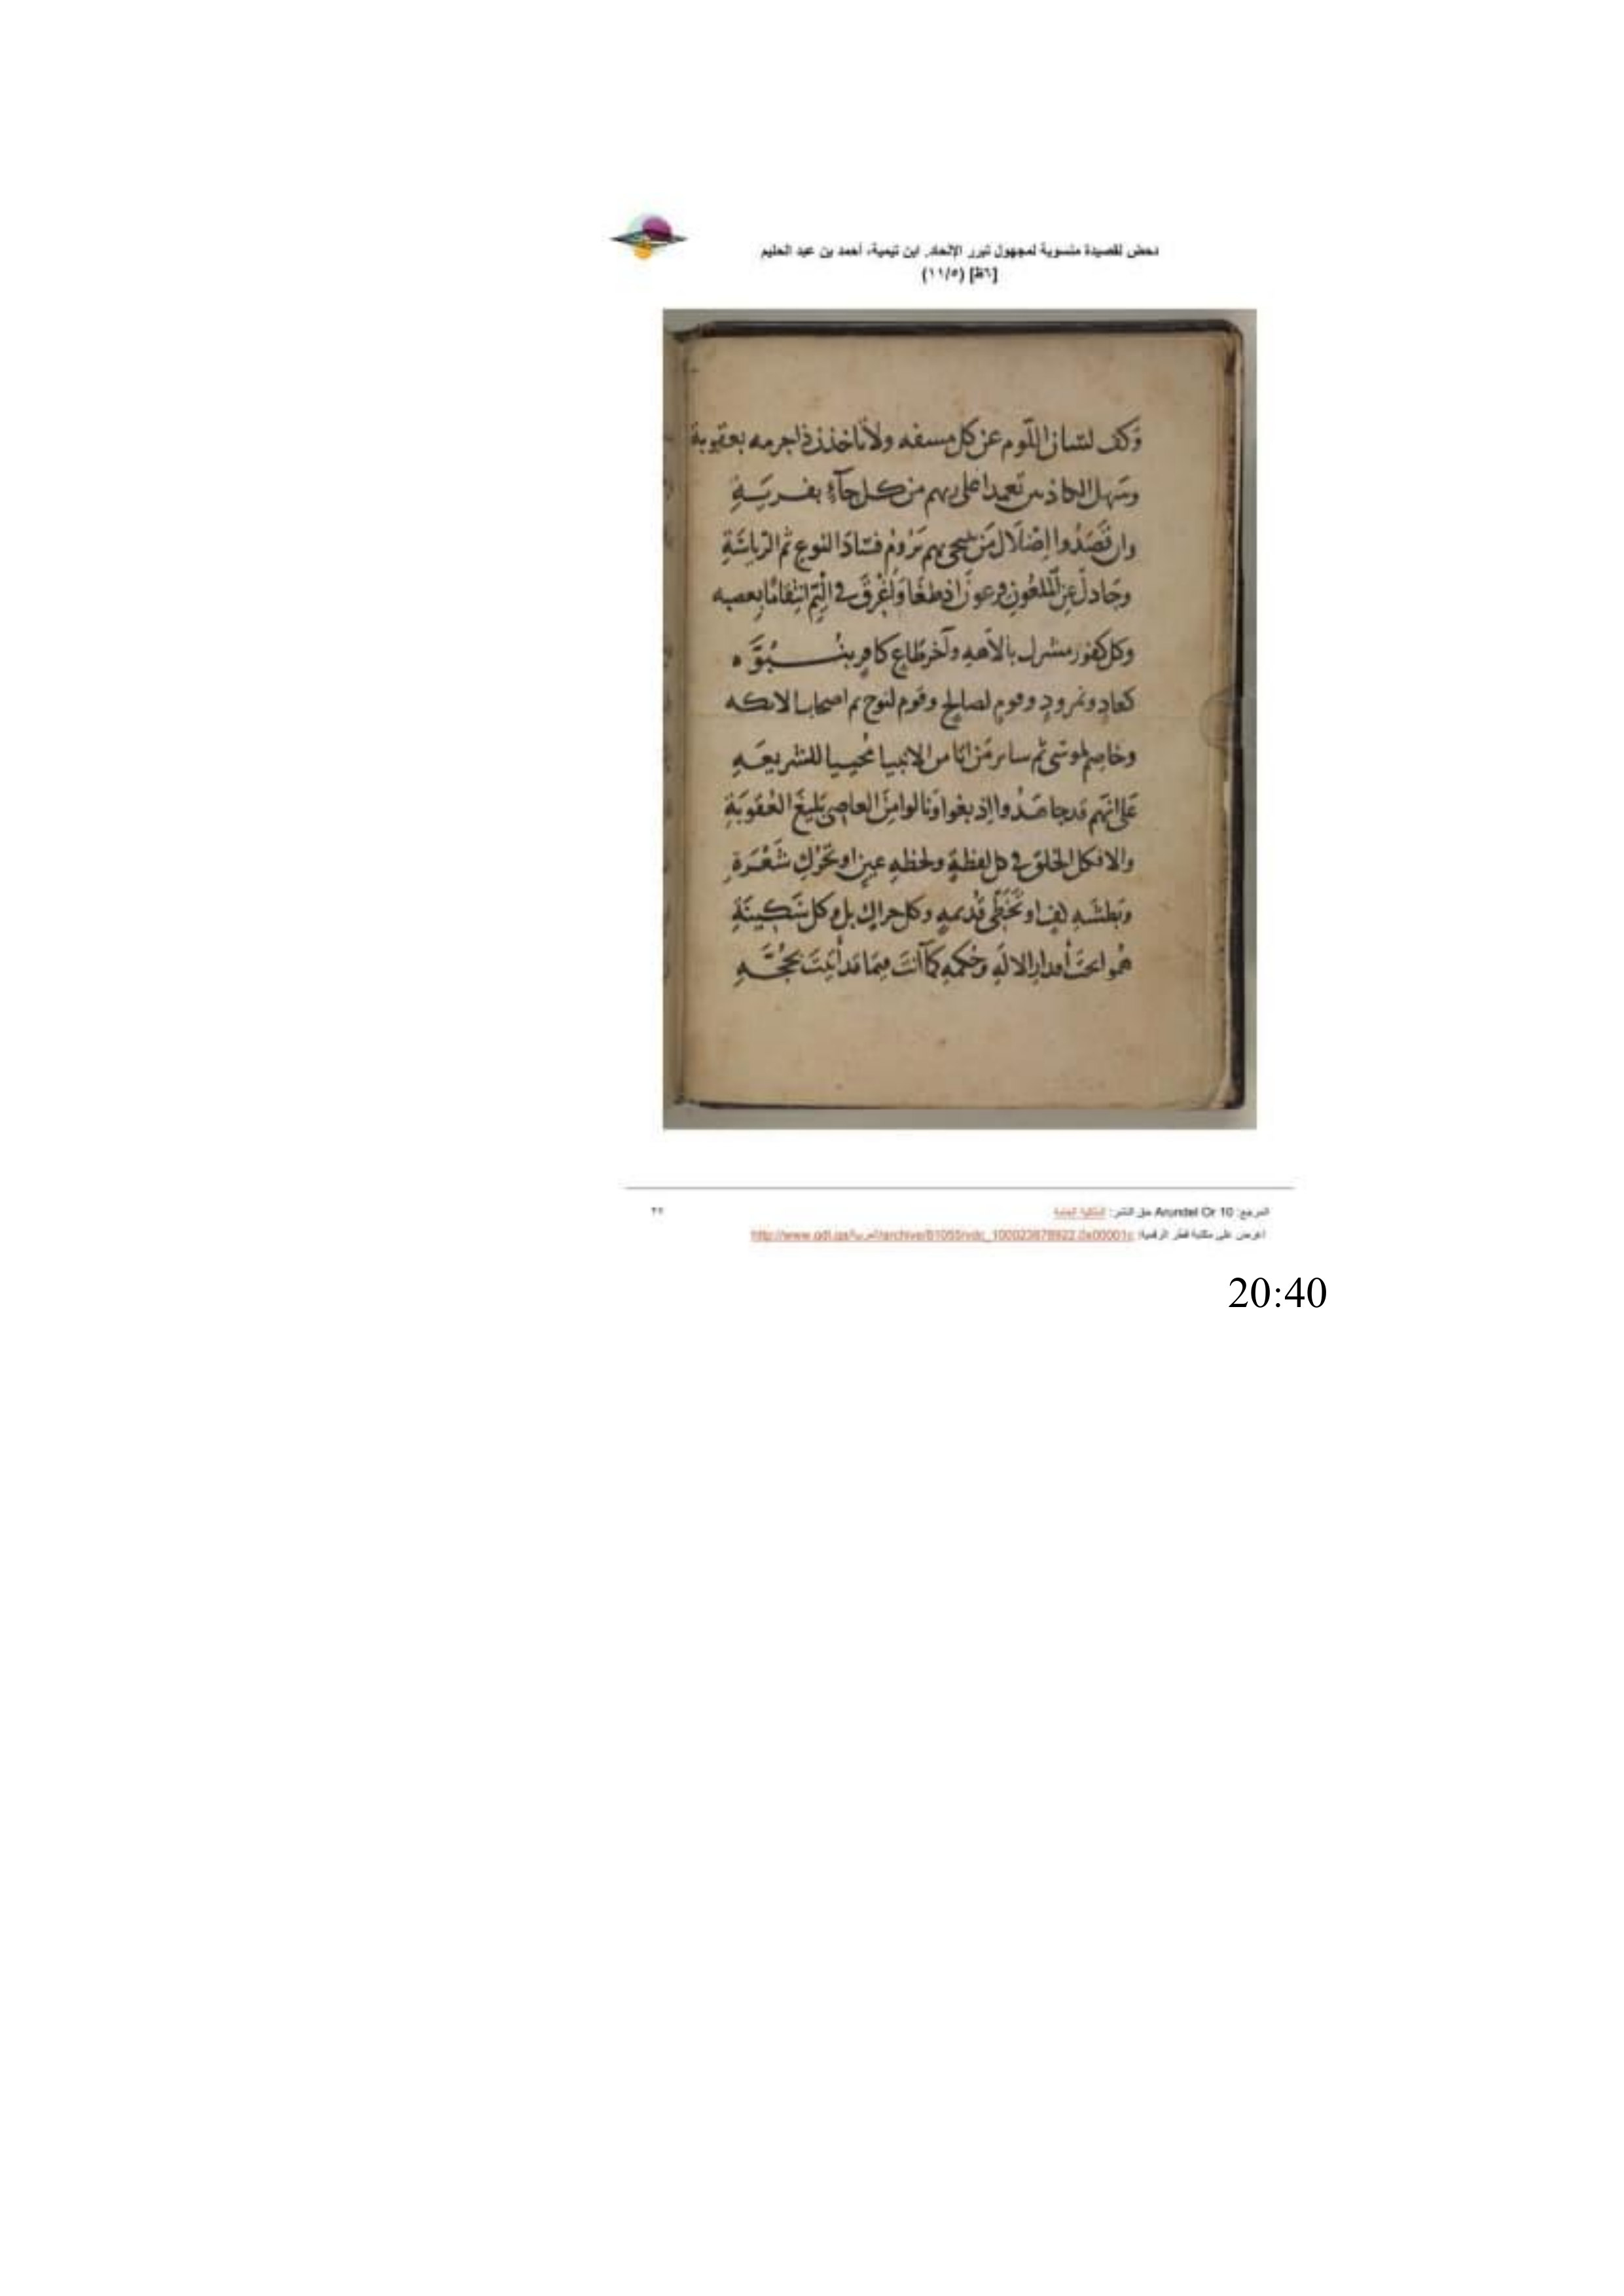 دحض لقصيدة منسوبة لمجهول تبرر الإلحاد. ابن تيمية، أحمد بن عبد الحليم
[٦ظ] (١١/٥)
وَكف لسان اللوم عن كل مسفه ولا تاخذن ذا جرمه بعقوبة
وسهل الكاذبين تعمدا على ربهم من كل جآء بفريَةِ
وان قصَدُوا اِضلال مَن يستجي بهم بَرومْ فسَادَ النوع ثم الرياسَةِ
وجَادل عَنِ الملعُون فرعونَ اذ طغَا وَاُغْرقَ في اليَمّ انتِقامًا بعصبه
وكل كفور مشرك بالاهه وآخر طاغٍ كافرٍ بنُبوَّه
كعادٍ ونمرودٍ وقومٍ لصالحٍ وقوم لنوح ثم اصحاب الايكه
وخاصِم لموسَى ثم ساير مَن اتا من الانبيا مُحييا للشريعَهِ
عَلى انهَم قد جاهَدُوا اِذ بغوا ونالوا مِنَ العاصِي بَليغَ العُقوبَةِ
والا فكل الخلق في كل لفظةٍ ولحظهِ عين او تَحَرُّكِ شَعْرَةٍ
وبَطشَهِ كف او تَخَطِّى قُديمهٍ وكل حراكٍ بل وكل سَكِينَةِ
هُموا تحتَ أقدارِ الالهِ وحُكمهِ كمآ انتَ فيمَا قد أتيتَ بحُجَّهِ
المرجع: Arundel Or 10 حق النشر: الملكية العامة
اعرض على مكتبة قطر الرقمية:
20:40